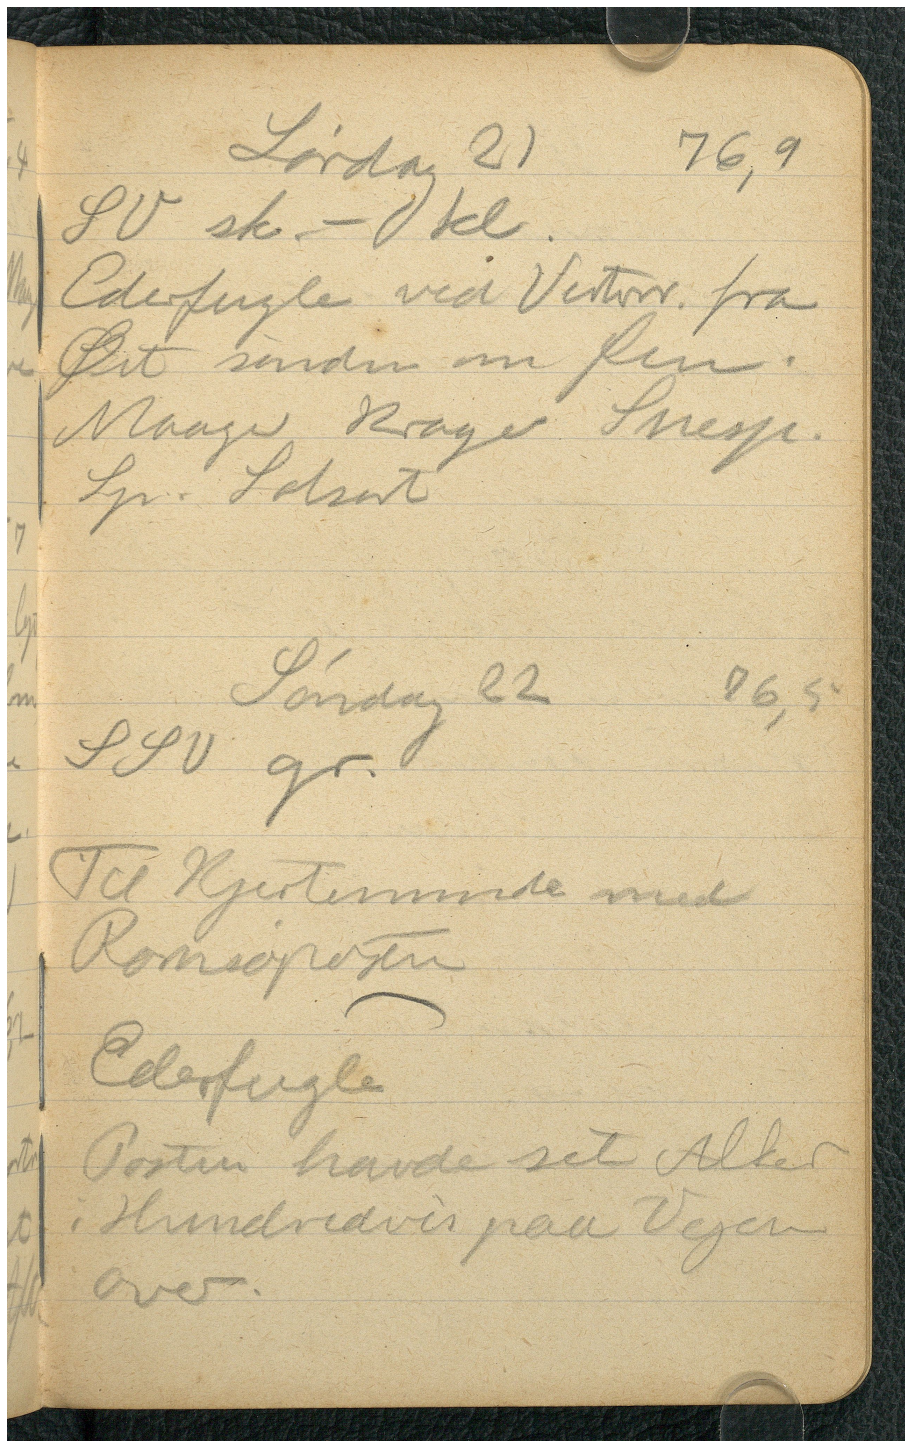 Lørdag 21 76,9
SV sk. – kl.
Ederfugle ved Vestrev. fra
Øst sønden om Øen.
Maage Krage Snesp.
Sp. Solsort
Søndag 22 76,5
SSV gr.
Til Kjerteminde med
Romsøposten
Ederfugle
Posten havde set Alker
i Hundredvis paa Vejen
over.